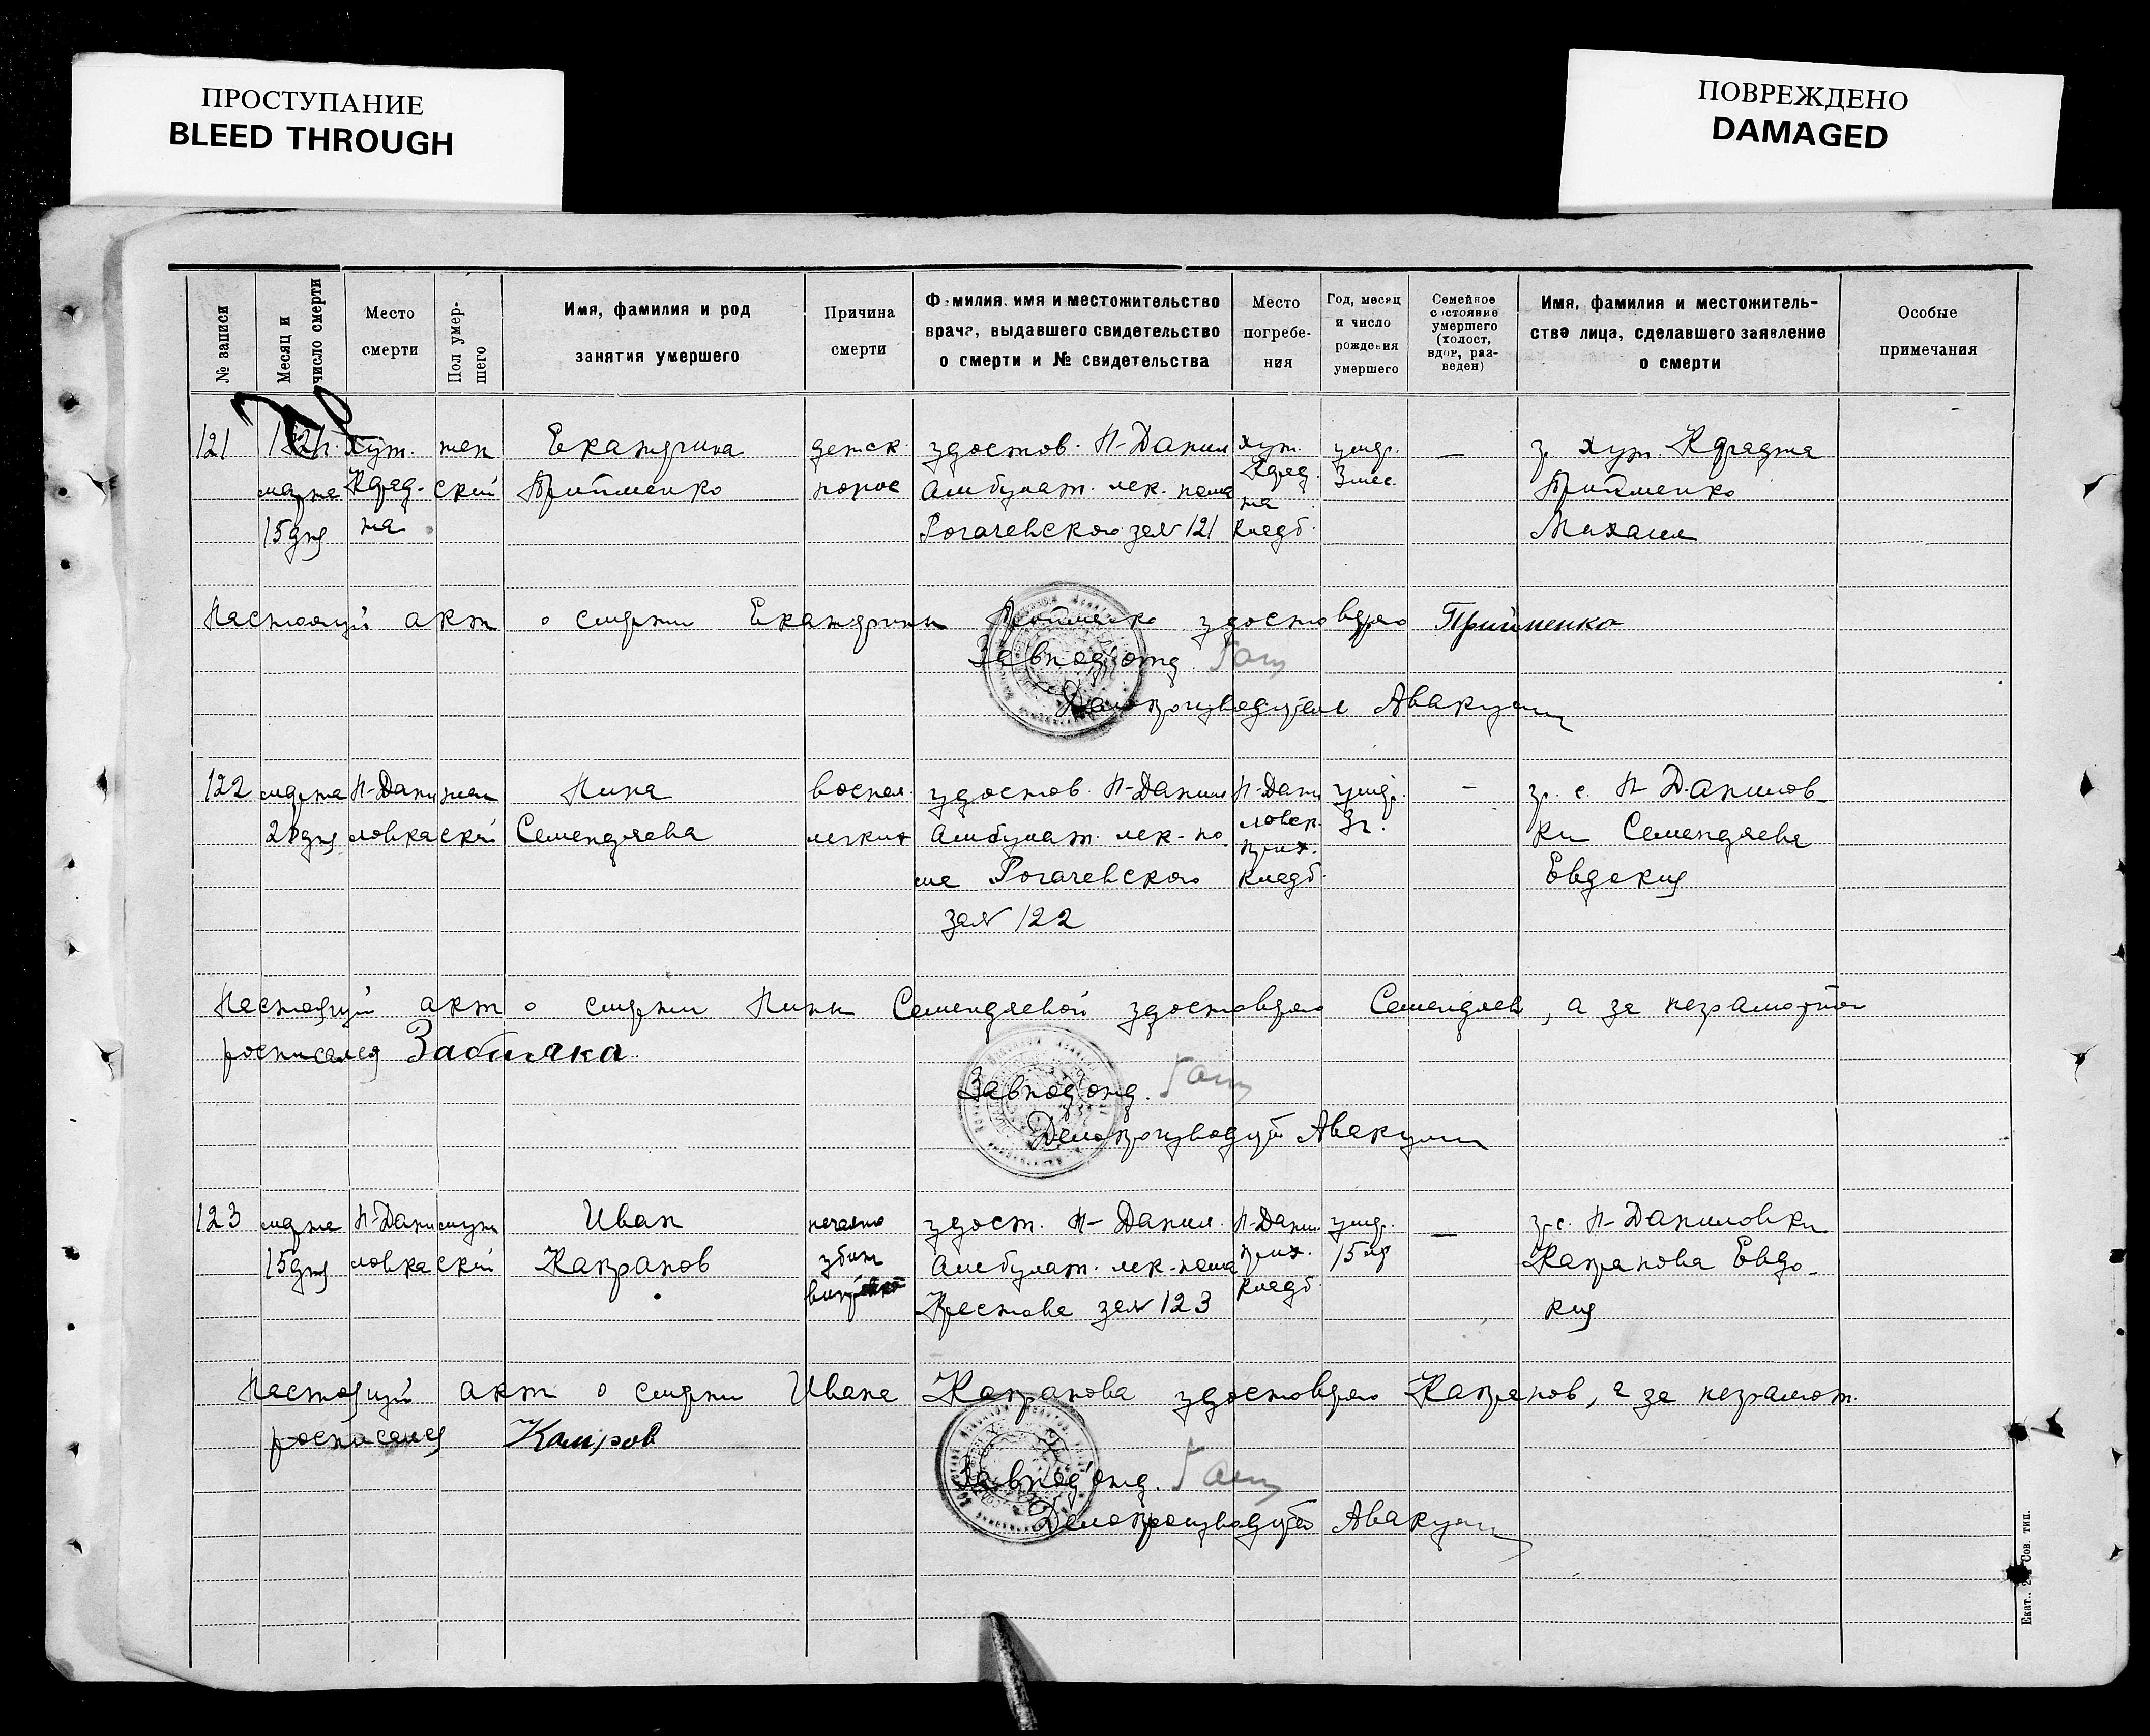 ПРОСТУПАНИЕ
BLEED THROUGH
ПОВРЕЖДЕНО
DAMAGED
№ записи
Месяц и
число смерти
Место
смерти
Пол умер-
шего
Имя, фамилия и род
занятия умершего
Причина
смерти
Фамилия, имя и местожительство
врача, выдавшего свидетельство
о смерти и № свидетельства
Место
погребе-
ния
Год, месяц
и число
рождения
умершего
Семейное
состояние
умершего
(холост,
вдов, раз-
веден)
Имя, фамилия и местожитель-
ство лица, сделавшего заявление
о смерти
Особые
примечания
121
марта
15 дня
хут.
Крад-
та
жен
ский
Екатерина
Прийменко
детск.
порос
удостов. Н-Данил
Амбулат. лек. пома
Рогачевского за № 121
хут.
Крад.
та
кладб.
умер.
3 мес.
—
гр. хут. Крадта
Прийменко
Михаил
Настоящий акт о смерти Екатерины Прийменко удостоверяю Прийменко
Завподотд.
Делопроизводител
122
марта
дня
Н-Дани
ловка
жен
ский
Нина
Семендяева
воспал.
легких
удостов. Н-Данил
Амбулат. лек-по
ма Рогачевского
за № 122
Н-Дани
ловск.
прих.
кладб.
умер.
3 г.
—
гр. с. Н Данилов-
ки Семендяева
Евдокия
Настоящий акт о смерти Нины Семендяевой удостоверяю Семендяев, а за неграмотной
росписался Забияка
Завподотд.
Делопроизводит
123
марта
15 дня
Н-Дани
ловка
муж
ский
Иван
Капранов
нечаяно
убит
удост. Н- Данил.
Амбулат. лек-пома
Крестова за № 123
Н-Данил
прих.
кладб
умер.
15 л
—
гр. с. Н-Даниловки
Капранова Евдо-
кия
Настоящий акт о смерти Ивана Капранова удостоверяю Капранов, а за неграмот.
росписался
Завподотд.
Делопроизводит